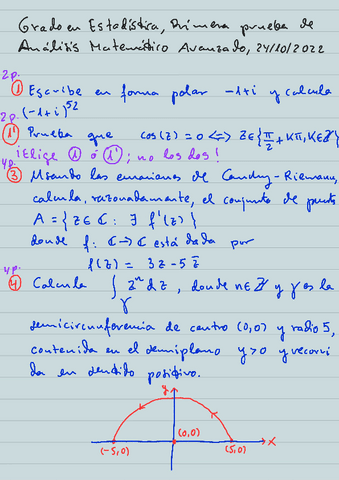 Grado en Estadística, Primera prueba de
Análisis Matemático Avanzado, 24/10/2022
2p. ① Escribe en forma polar -1+i y calcula
(-1+i)^52
2p. ①' Prueba que cos(z) = 0 <=> z∈{π/2 + kπ, k∈ℤ}
¡Elige ① ó ①'; no los dos!
4p. ③ Usando las ecuaciones de Cauchy-Riemann,
calcula, razonadamente, el conjunto de puntos
A = {z∈ℂ : ∃ f'(z)}
donde f: ℂ→ℂ está dada por
f(z) = 3z - 5z̄
4p. ④ Calcula ∫_γ z^n dz, donde n∈ℤ y γ es la
semicircunferencia de centro (0,0) y radio 5,
contenida en el semiplano y>0 y recorri
da en sentido positivo.
y
(-5,0) (0,0) (5,0) x